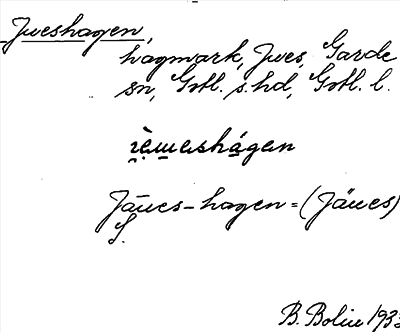 Jweshagen,
hagmark, Jwes, Garde
sn, Gotl. s. hd, Gotl. l.
Jäues-hagen = (Jäues)
S.
B. Bolin 1933